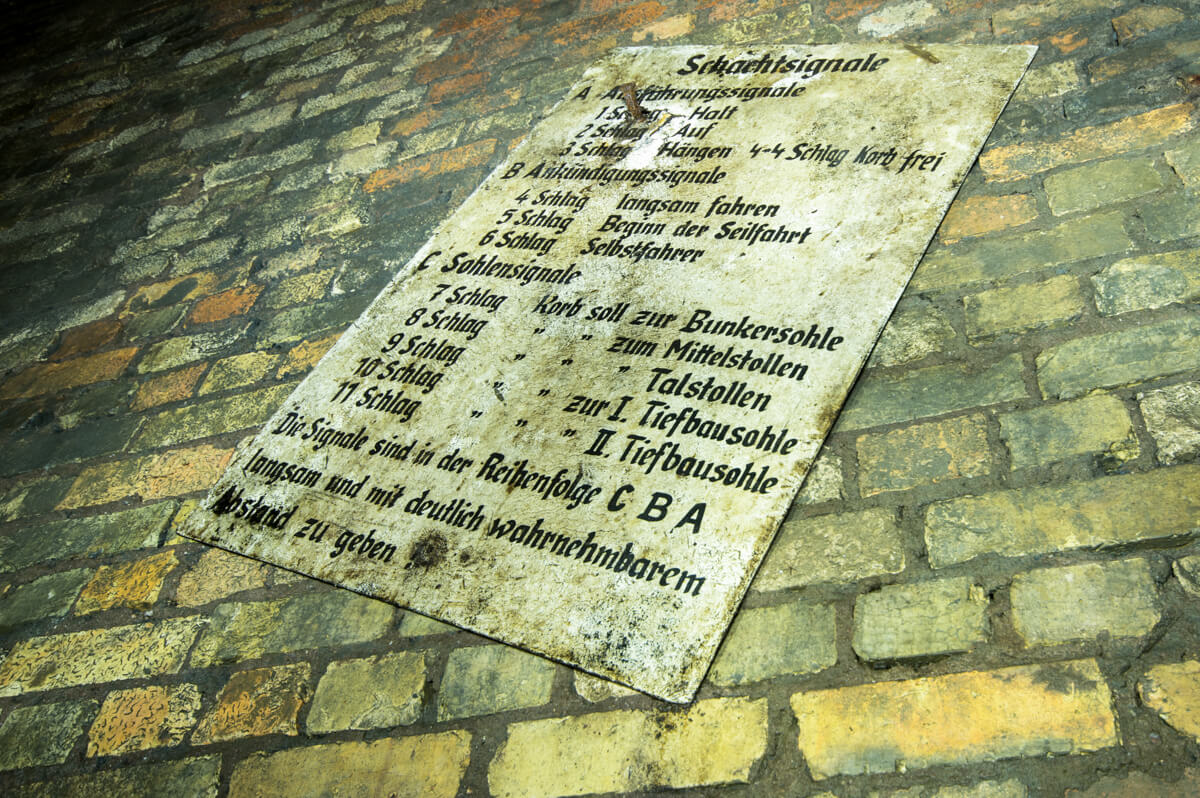 Schachtsignale
A Ausführungssignale
1 Schlag Halt
2 Schlag Auf
3 Schlag Hängen 4-4 Schlag Korb frei
B Ankündigungssignale
4 Schlag langsam fahren
5 Schlag Beginn der Seilfahrt
6 Schlag Selbstfahrer
C Sohlensignale
7 Schlag Korb soll zur Bunkersohle
8 Schlag " " zum Mittelstollen
9 Schlag " " " Talstollen
10 Schlag " " zur I. Tiefbausohle
11 Schlag " " " II. Tiefbausohle
Die Signale sind in der Reihenfolge C B A
langsam und mit deutlich wahrnehmbarem
Abstand zu geben